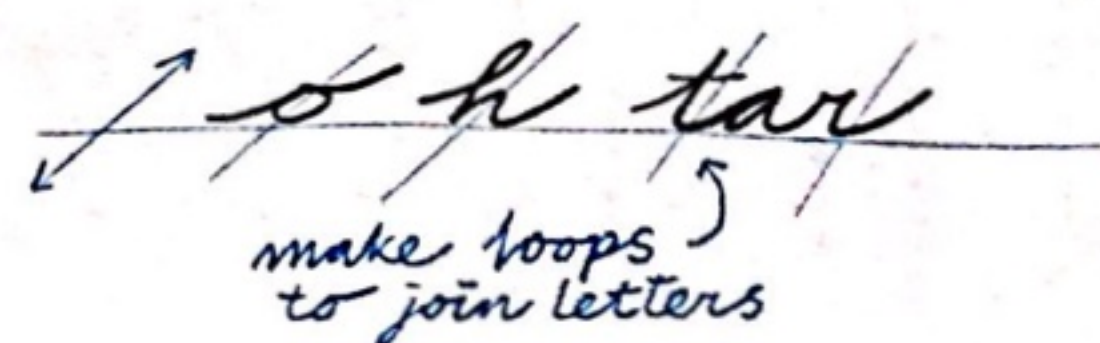 o h tar
make loops
to join letters